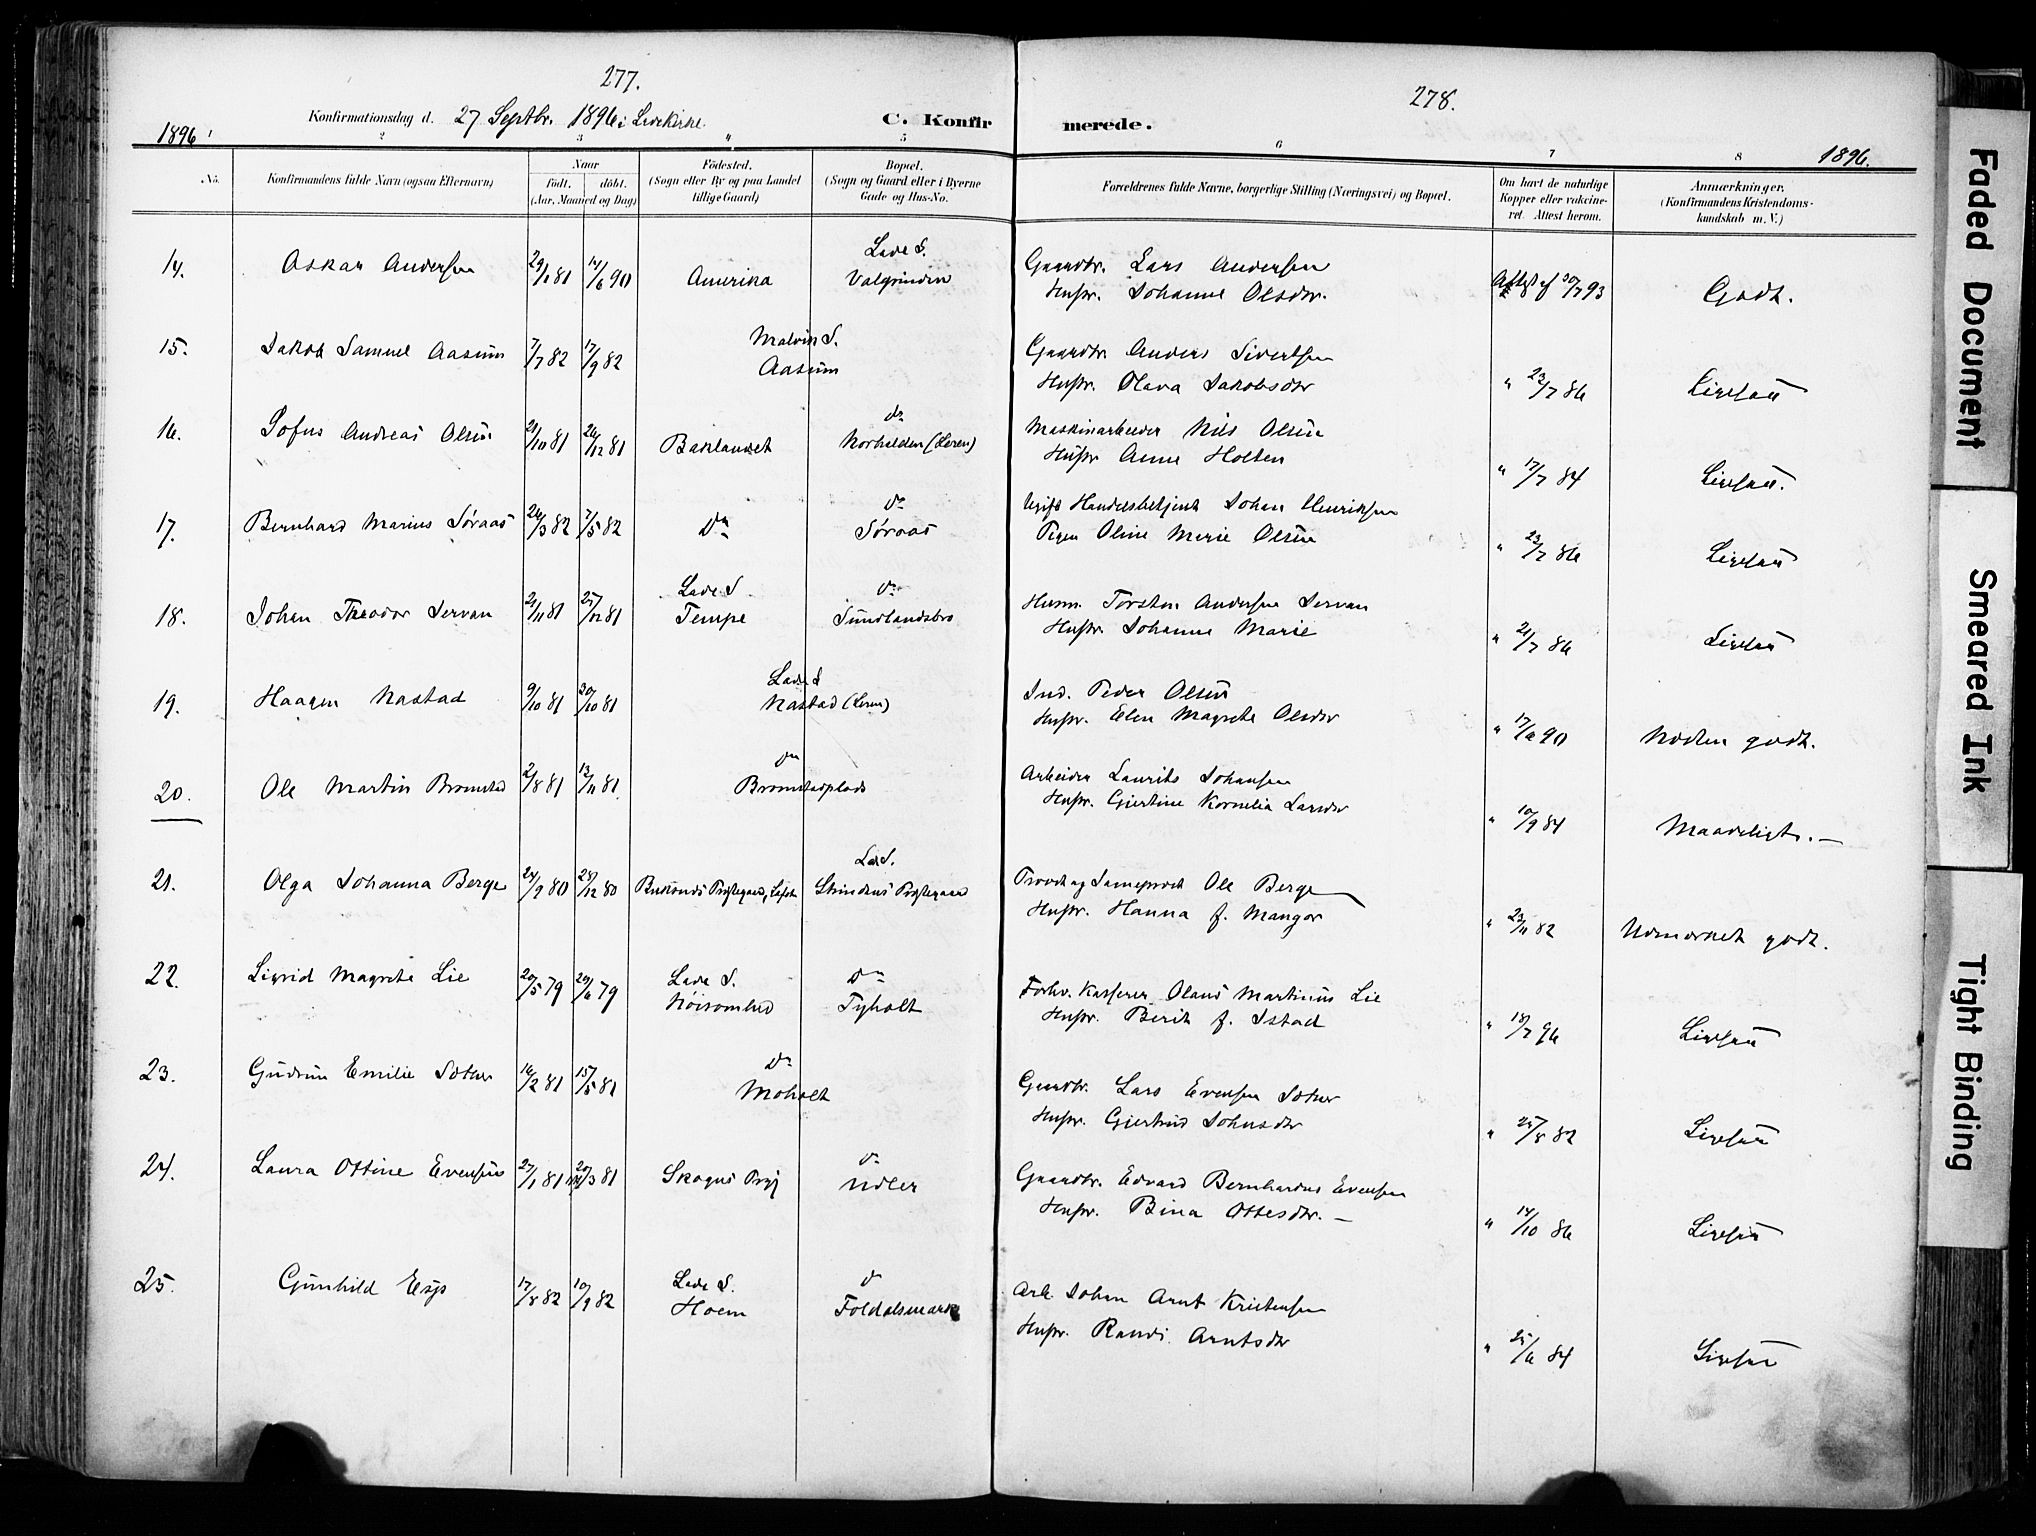 277.
278.
Konfirmationsdag d. 27 Septbr. 1896 i Ladekirke
C. Konfirmerede.
1896
1896.
No. Konfirmandens fulde Navn (ogsaa Efternavn) Naar födt. döbt. (Aar, Maaned og Dag) Födested. (Sogn eller By og paa Landet tillige Gaard) Bopæl. (Sogn og Gaard eller i Byerne Gade og Hus-No. Forældrenes fulde Navne, borgerlige Stilling (Næringsvei) og Bopæl. Om havt de naturlige Kopper eller vakcineret. Attest herom. Anmærkninger. (Konfirmandens Kristendomskundskab m. V.)
14. Oskar Andersen 29/1 81 14/6 90 Amerika Lade S. Valgrinden Gaardbr. Lars Andersen
Hustr. Johanne Olsdtr. Attest af 30/7 93 Godt.
15. Jakob Samuel Aasum 7/7 82 17/9 82 Malvik S. Aasum Gaardbr. Anders Sivertsen
Hustr. Olava Jakobsdtr " 23/7 86 Ligesaa
16. Sofus Andreas Olsen 21/10 81 26/12 81 Baklandet do Norhalden (Leren) Maskinarbeider Nils Olsen
Hustr Anne Holten " 17/7 84 Ligesaa.
17. Bernhard Marius Søraas 26/3 82 7/5 82 Do do Søraas Ugift Handelsbetjent Johan Henriksen
Pigen Oline Marie Olsen " 23/7 86 Ligesaa
18. Johan Theodor Servan 21/11 81 25/12 81 Lade S Tempe do Sundlandsbro Husm. Torsten Andersen Servan
Hustr. Johanne Marie " 21/7 86 Ligesaa
19. Haagen Nastad 9/10 81 30/10 81 Lade S Nastad (Leren) Ind. Peder Olsen
Hustr. Elen Magrete Olsdtr " 17/6 90 Næsten godt.
20. Ole Martin Bromstad 2/8 81 13/11 81 do Bromstadplads Arbeider Laurits Johansen
Hustr. Gjertine Kornelia Larsdtr " 10/9 84 Maadeligt.
21. Olga Johanna Berge 24/9 80 25/12 80 Lade S. Strindens Præstegaard Provst og Sognepræst Ole Berge
Hustr. Hanna f. Mangor " 23/11 82 Udmærket godt.
22. Sigrid Magrete Lie 20/5 79 29/6 79 Lade S. Nøisomhed do Tyholt Forhv. Kasserer Olaus Martinus Lie
Hustr. Berit f. Istad " 18/7 96 Ligesaa
23. Gudrun Emilie Sæther 16/2 81 15/5 81 do Moholt Gaardbr. Lars Evensen Sæther
Hustr. Gjertrud Johnsdtr " 25/8 82 Ligesaa
24. Laura Ottine Evensen 27/1 81 20/3 81 Skogns Prgj do Udler Gaardbr. Edvard Bernhardus Evensen
Hustr. Bina Ottesdtr. " 14/10 86 Ligesaa
25. Gunhild Esp 17/8 82 10/9 82 Lade S. Hoem do Foldalsmark Arb. Johan Arnt Kristensen
Hustr. Randi Arntsdtr " 25/6 84 Ligesaa
Faded Document
Smeared Ink
Tight Binding